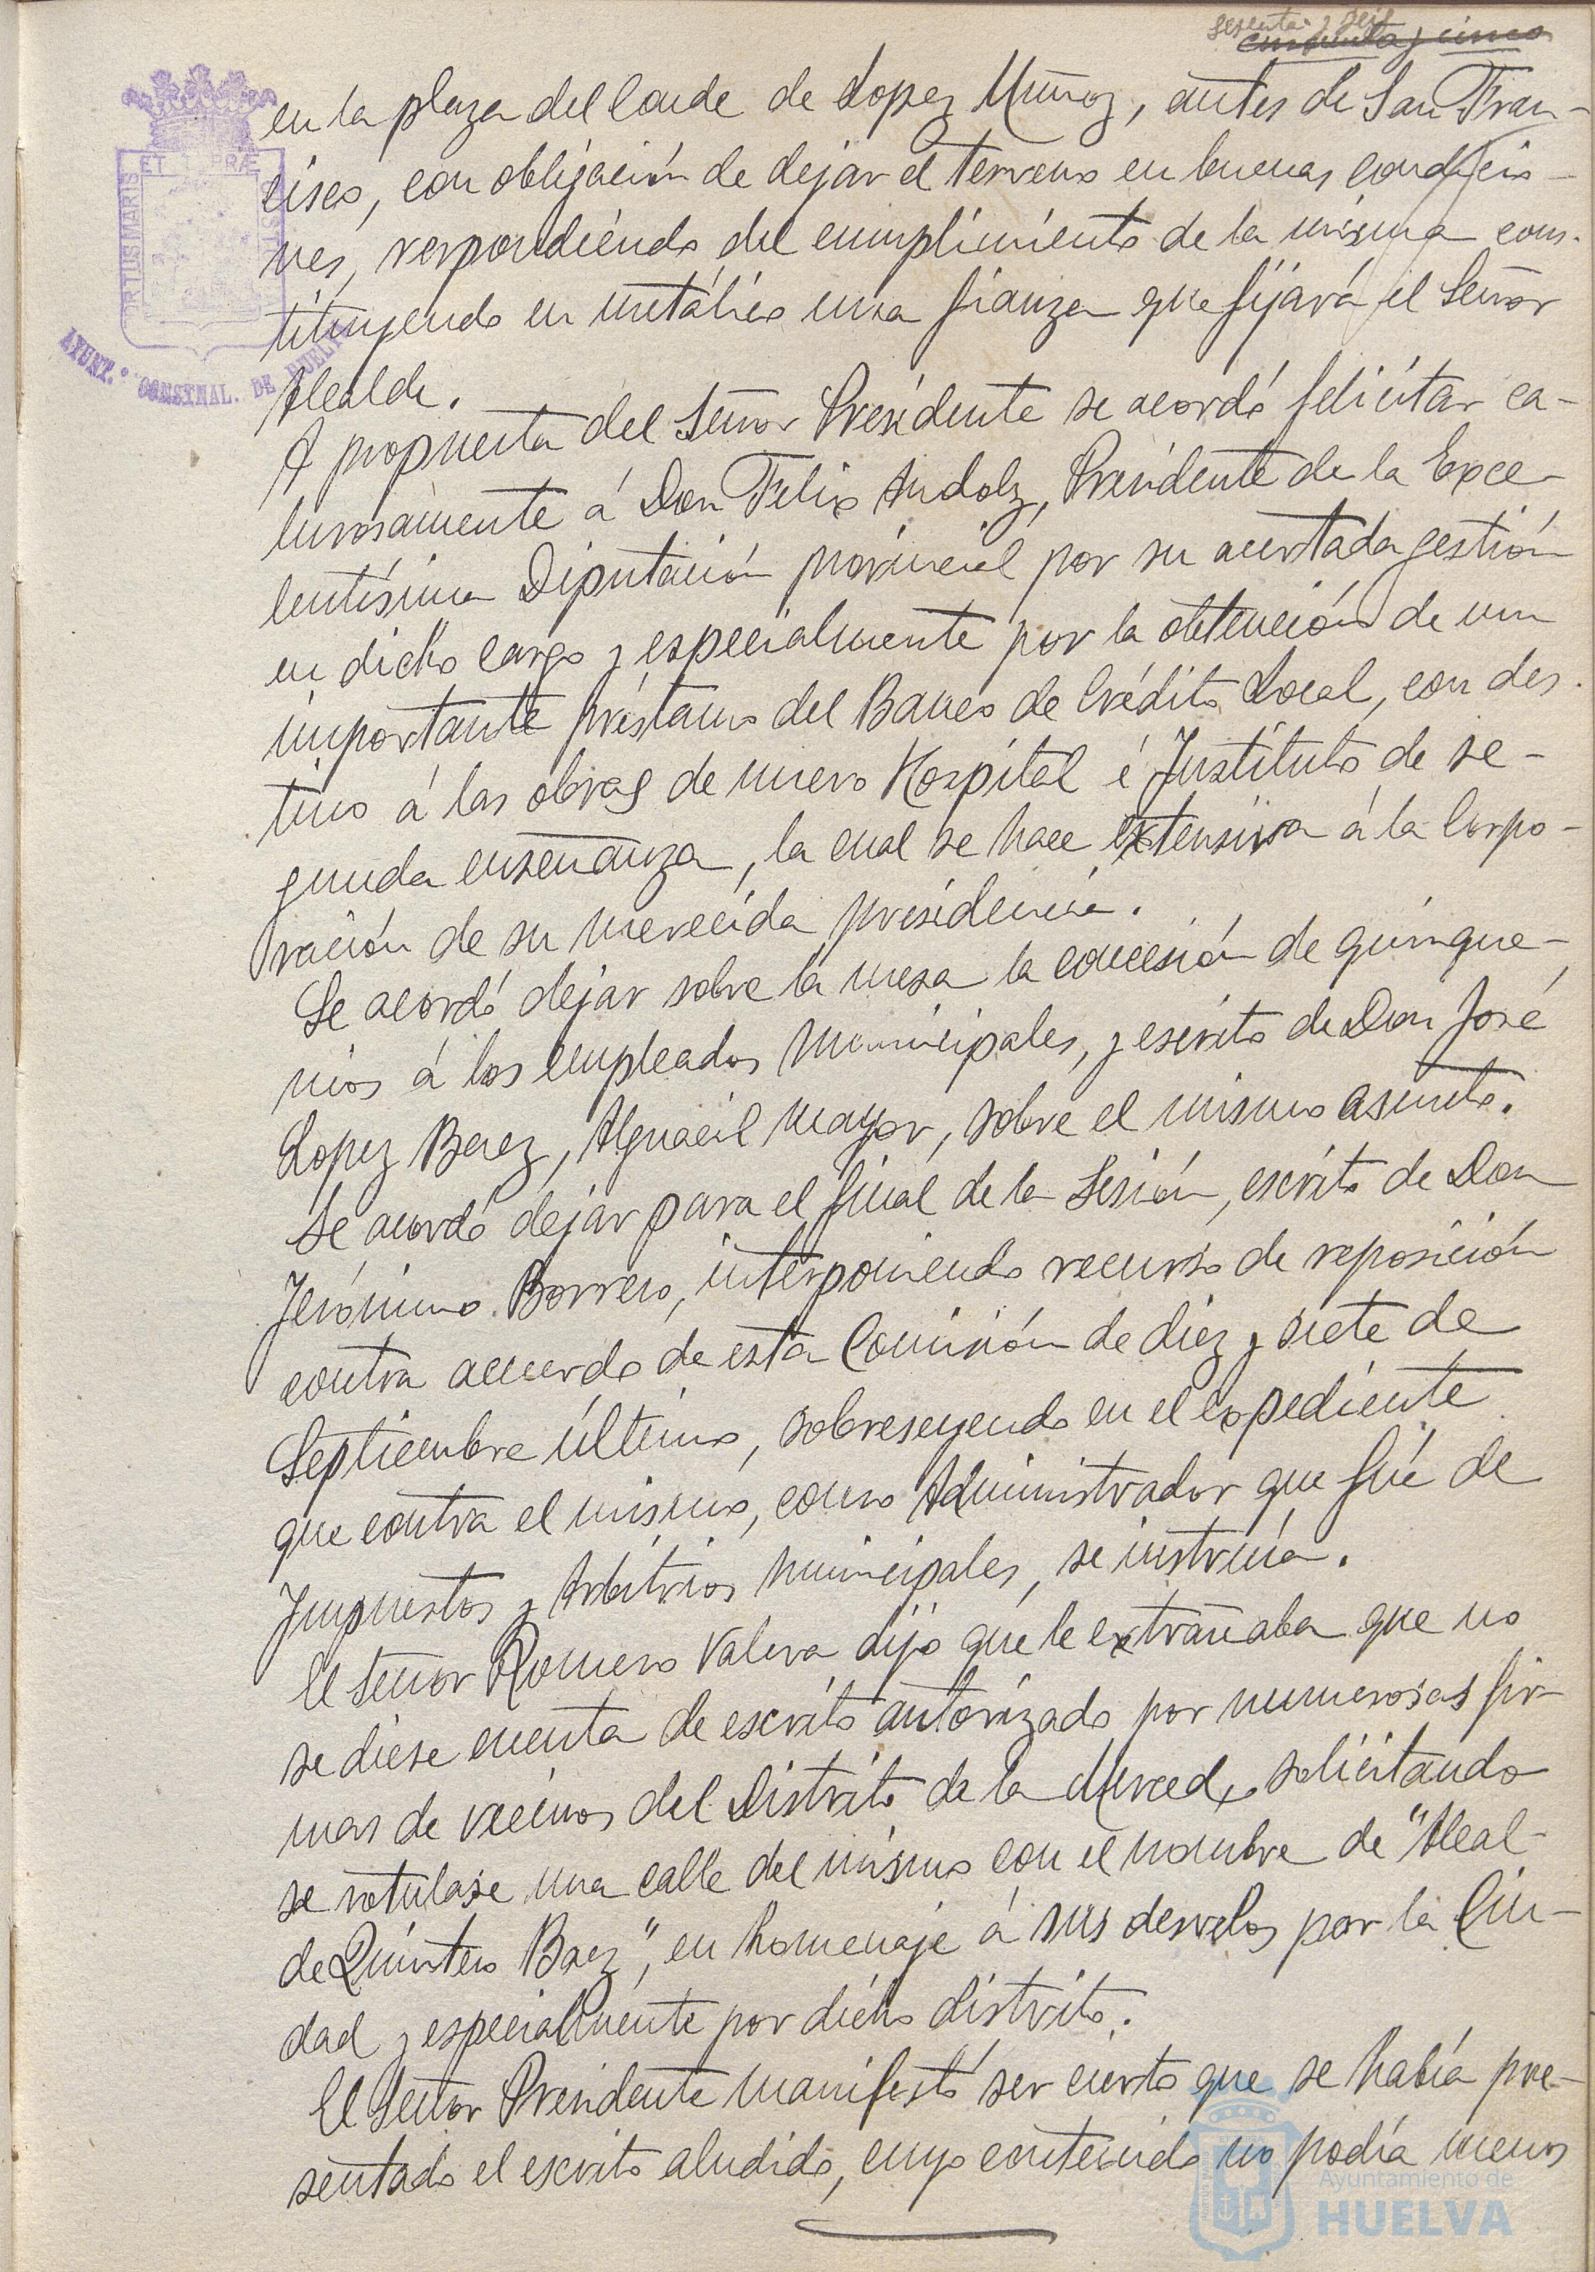 sesenta y seis
cincuenta y cinco
en la plaza del Conde de Lopez Muñoz, antes de San Fran-
cisco, con obligación de dejar el terreno en buenas condicio-
nes, respondiendo del cumplimiento de la misma cons-
tituyendo en metálico una fianza que fijará el Señor
Alcalde.
A propuesta del Señor Presidente se acordó felicitar ca-
lurosamente á Don Felix Andolz, Presidente de la Exce-
lentísima Diputación provincial por su acertada gestión
en dicho cargo y especialmente por la obtención de un
importante préstamo del Banco de Crédito Local, con des-
tino á las obras de nuevo Hospital é Instituto de se-
gunda enseñanza, la cual se hace extensiva á la Corpo-
ración de su merecida presidencia.
Se acordó dejar sobre la mesa la concesión de quinque-
nios á los empleados municipales, y escrito de Don José
Lopez Baez, Alguacil mayor, sobre el mismo asunto.
Se acordó dejar para el final de la Sesión, escrito de Don
Jerónimo Borrero, interponiendo recurso de reposición
contra acuerdo de esta Comisión de diez y siete de
Septiembre último, sobreseyendo en el expediente
que contra el mismo, como Administrador que fué de
Impuestos y Arbitrios municipales, se instruía.
El Señor Romero Valera dijo que le extrañaba que no
se diese cuenta de escrito autorizado por numerosas fir-
mas de vecinos del Distrito de la Merced, solicitando
se rotulase una calle del mismo con el nombre de "Alcal-
de Quintero Baez", en homenaje á sus desvelos por la Ciu-
dad y especialmente por dicho distrito.
El Señor Presidente manifestó ser cierto que se había pre-
sentado el escrito aludido, cuyo contenido no podía menos
AYUNT.º CONSTNAL. DE HUELVA
PORTUS MARIS ET
Ayuntamiento de
HUELVA